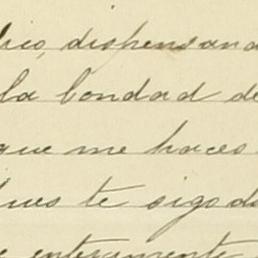 dispensand
la bondad de
que me haces
te sigo d
enteramente